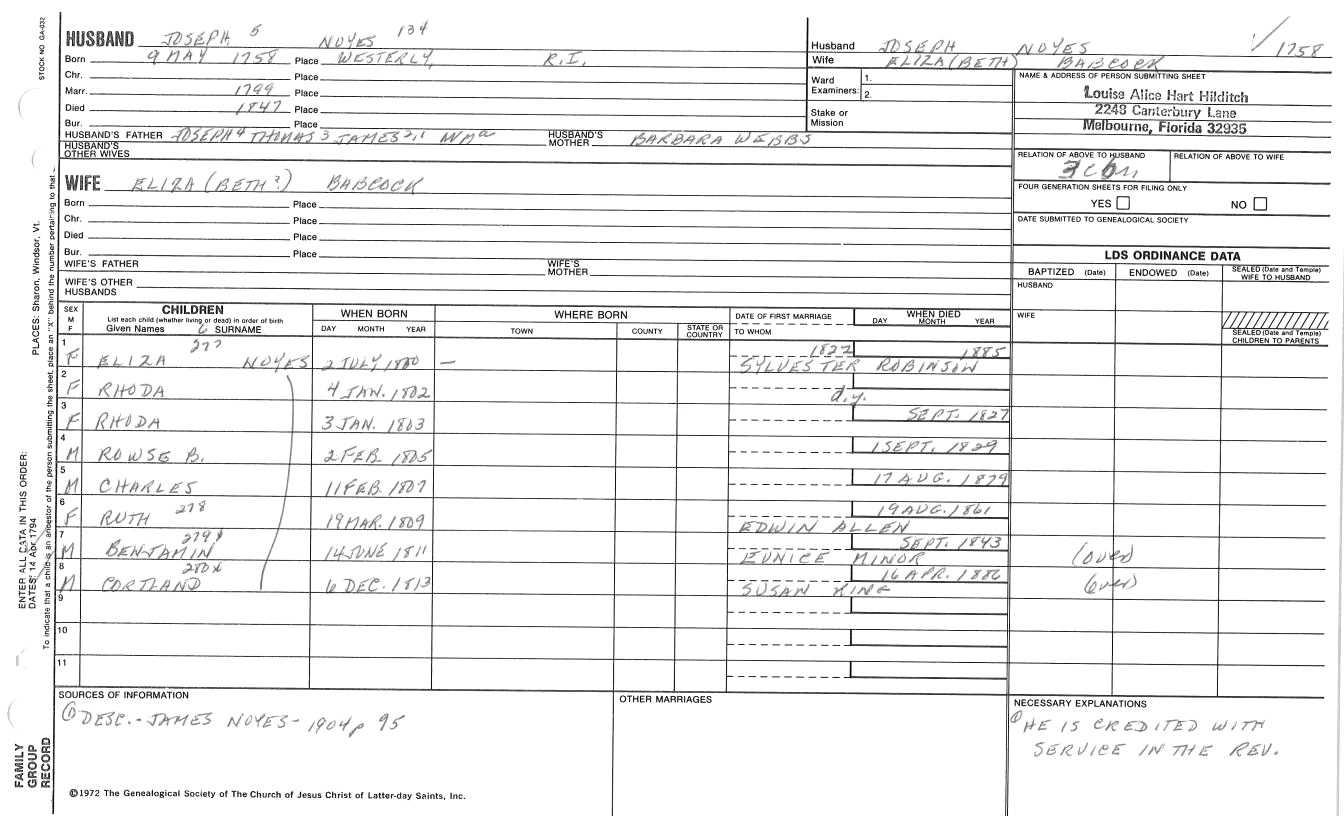 STOCK NO. GA-032
HUSBAND JOSEPH 5 NOYES 134
Born 9 MAY 1758 Place WESTERLY, R.I.
Chr. Place
Marr. 1799 Place
Died 1847 Place
Bur. Place
HUSBAND'S FATHER JOSEPH 4 THOMAS 3 JAMES 2,1 Wm a HUSBAND'S MOTHER BARBARA WEBBS
HUSBAND'S OTHER WIVES
WIFE ELIZA (BETH?) BABCOCK
Born Place
Chr. Place
Died Place
Bur. Place
WIFE'S FATHER WIFE'S MOTHER
WIFE'S OTHER HUSBANDS
Husband JOSEPH NOYES 1758
Wife ELIZA (BETH) BABCOCK
Ward Examiners: 1. 2.
Stake or Mission
NAME & ADDRESS OF PERSON SUBMITTING SHEET
Louise Alice Hart Hilditch
2248 Canterbury Lane
Melbourne, Florida 32935
RELATION OF ABOVE TO HUSBAND RELATION OF ABOVE TO WIFE
FOUR GENERATION SHEETS FOR FILING ONLY
YES NO
DATE SUBMITTED TO GENEALOGICAL SOCIETY
LDS ORDINANCE DATA
BAPTIZED (Date) ENDOWED (Date) SEALED (Date and Temple) WIFE TO HUSBAND
HUSBAND
WIFE
SEALED (Date and Temple) CHILDREN TO PARENTS
SEX M F CHILDREN WHEN BORN WHERE BORN DATE OF FIRST MARRIAGE WHEN DIED
List each child (whether living or dead) in order of birth
Given Names 6 SURNAME DAY MONTH YEAR TOWN COUNTY STATE OR COUNTRY TO WHOM DAY MONTH YEAR
1 277 1822 1885
F ELIZA NOYES 2 JULY 1800 — SYLVESTER ROBINSON
2
F RHODA 4 JAN. 1802 d.y.
3 SEPT. 1827
F RHODA 3 JAN. 1803
4 1 SEPT. 1829
M ROWSE B. 2 FEB. 1805
5 17 AUG. 1879
M CHARLES 11 FEB. 1807
6 278 19 AUG. 1861
F RUTH 19 MAR. 1809 EDWIN ALLEN
7 279x SEPT. 1843
M BENJAMIN 14 JUNE 1811 EUNICE MINOR (over)
8 280x 16 APR. 1886
M CORTLAND 6 DEC. 1813 SUSAN KING (over)
9
10
11
SOURCES OF INFORMATION
① DESC. - JAMES NOYES - 1904 p 95
OTHER MARRIAGES
NECESSARY EXPLANATIONS
① HE IS CREDITED WITH
SERVICE IN THE REV.
©1972 The Genealogical Society of The Church of Jesus Christ of Latter-day Saints, Inc.
ENTER ALL DATA IN THIS ORDER:
DATES: 14 Apr 1794
PLACES: Sharon, Windsor, Vt.
To indicate that a child is an ancestor of the person submitting the sheet, place an "X" behind the number pertaining to that
FAMILY
GROUP
RECORD